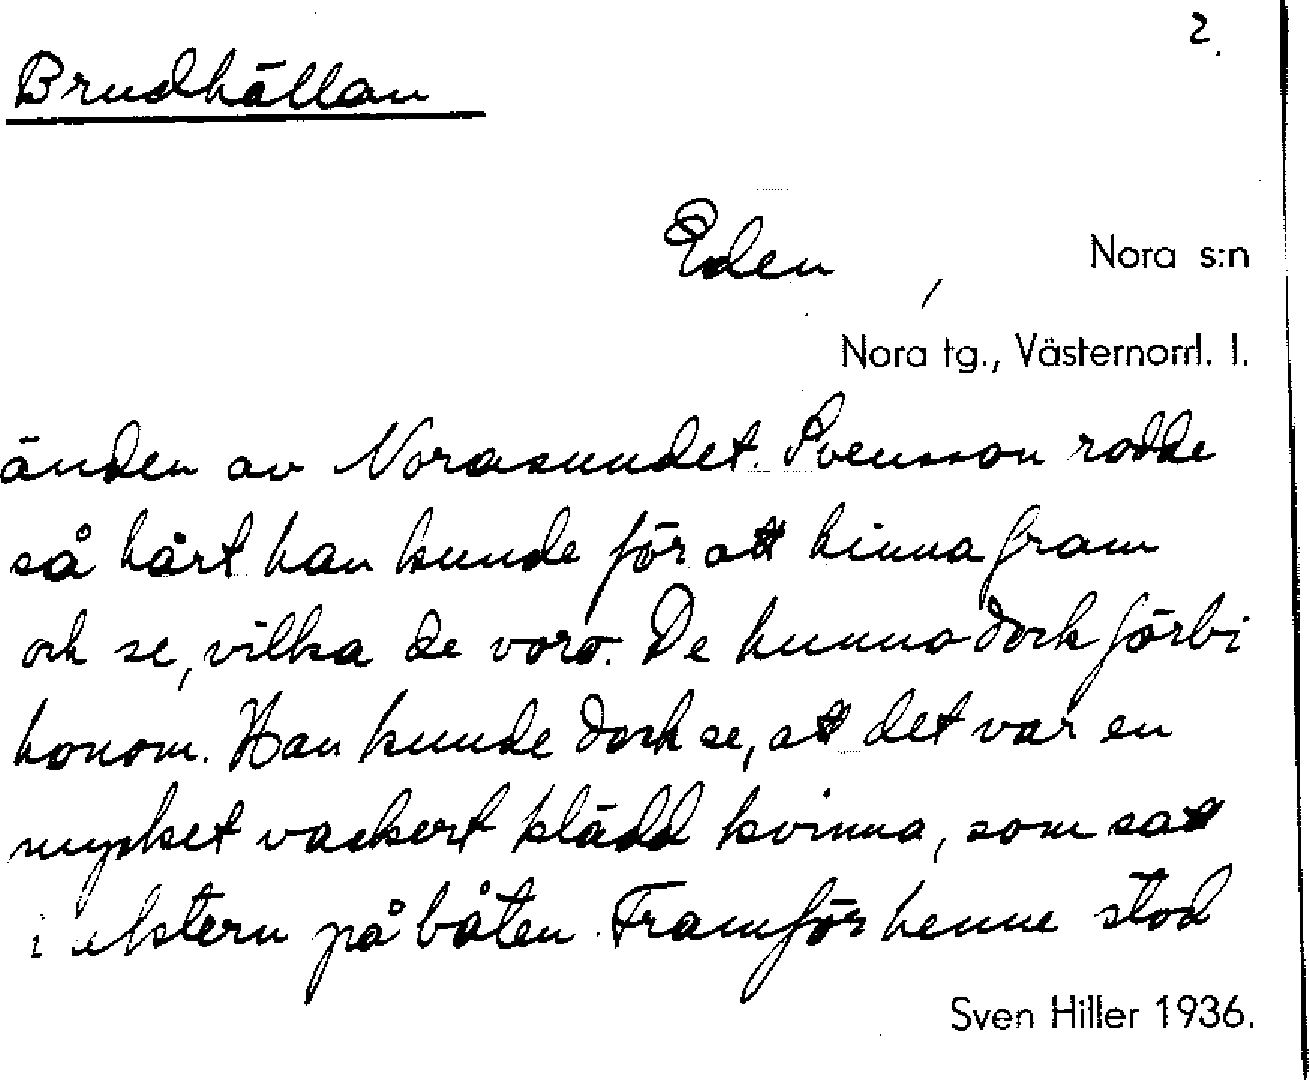 2.
Brudhällan
Eden, Nora s:n
Nora tg., Västernorrl. l.
änden av Norasundet. Svensson rodde
så hårt han kunde för att hinna fram
och se, vilka de voro. De hunno dock förbi
honom. Han kunde dock se, att det var en
mycket vackert klädd kvinna, som satt
i akstern på båten. Framför henne stod
Sven Hiller 1936.